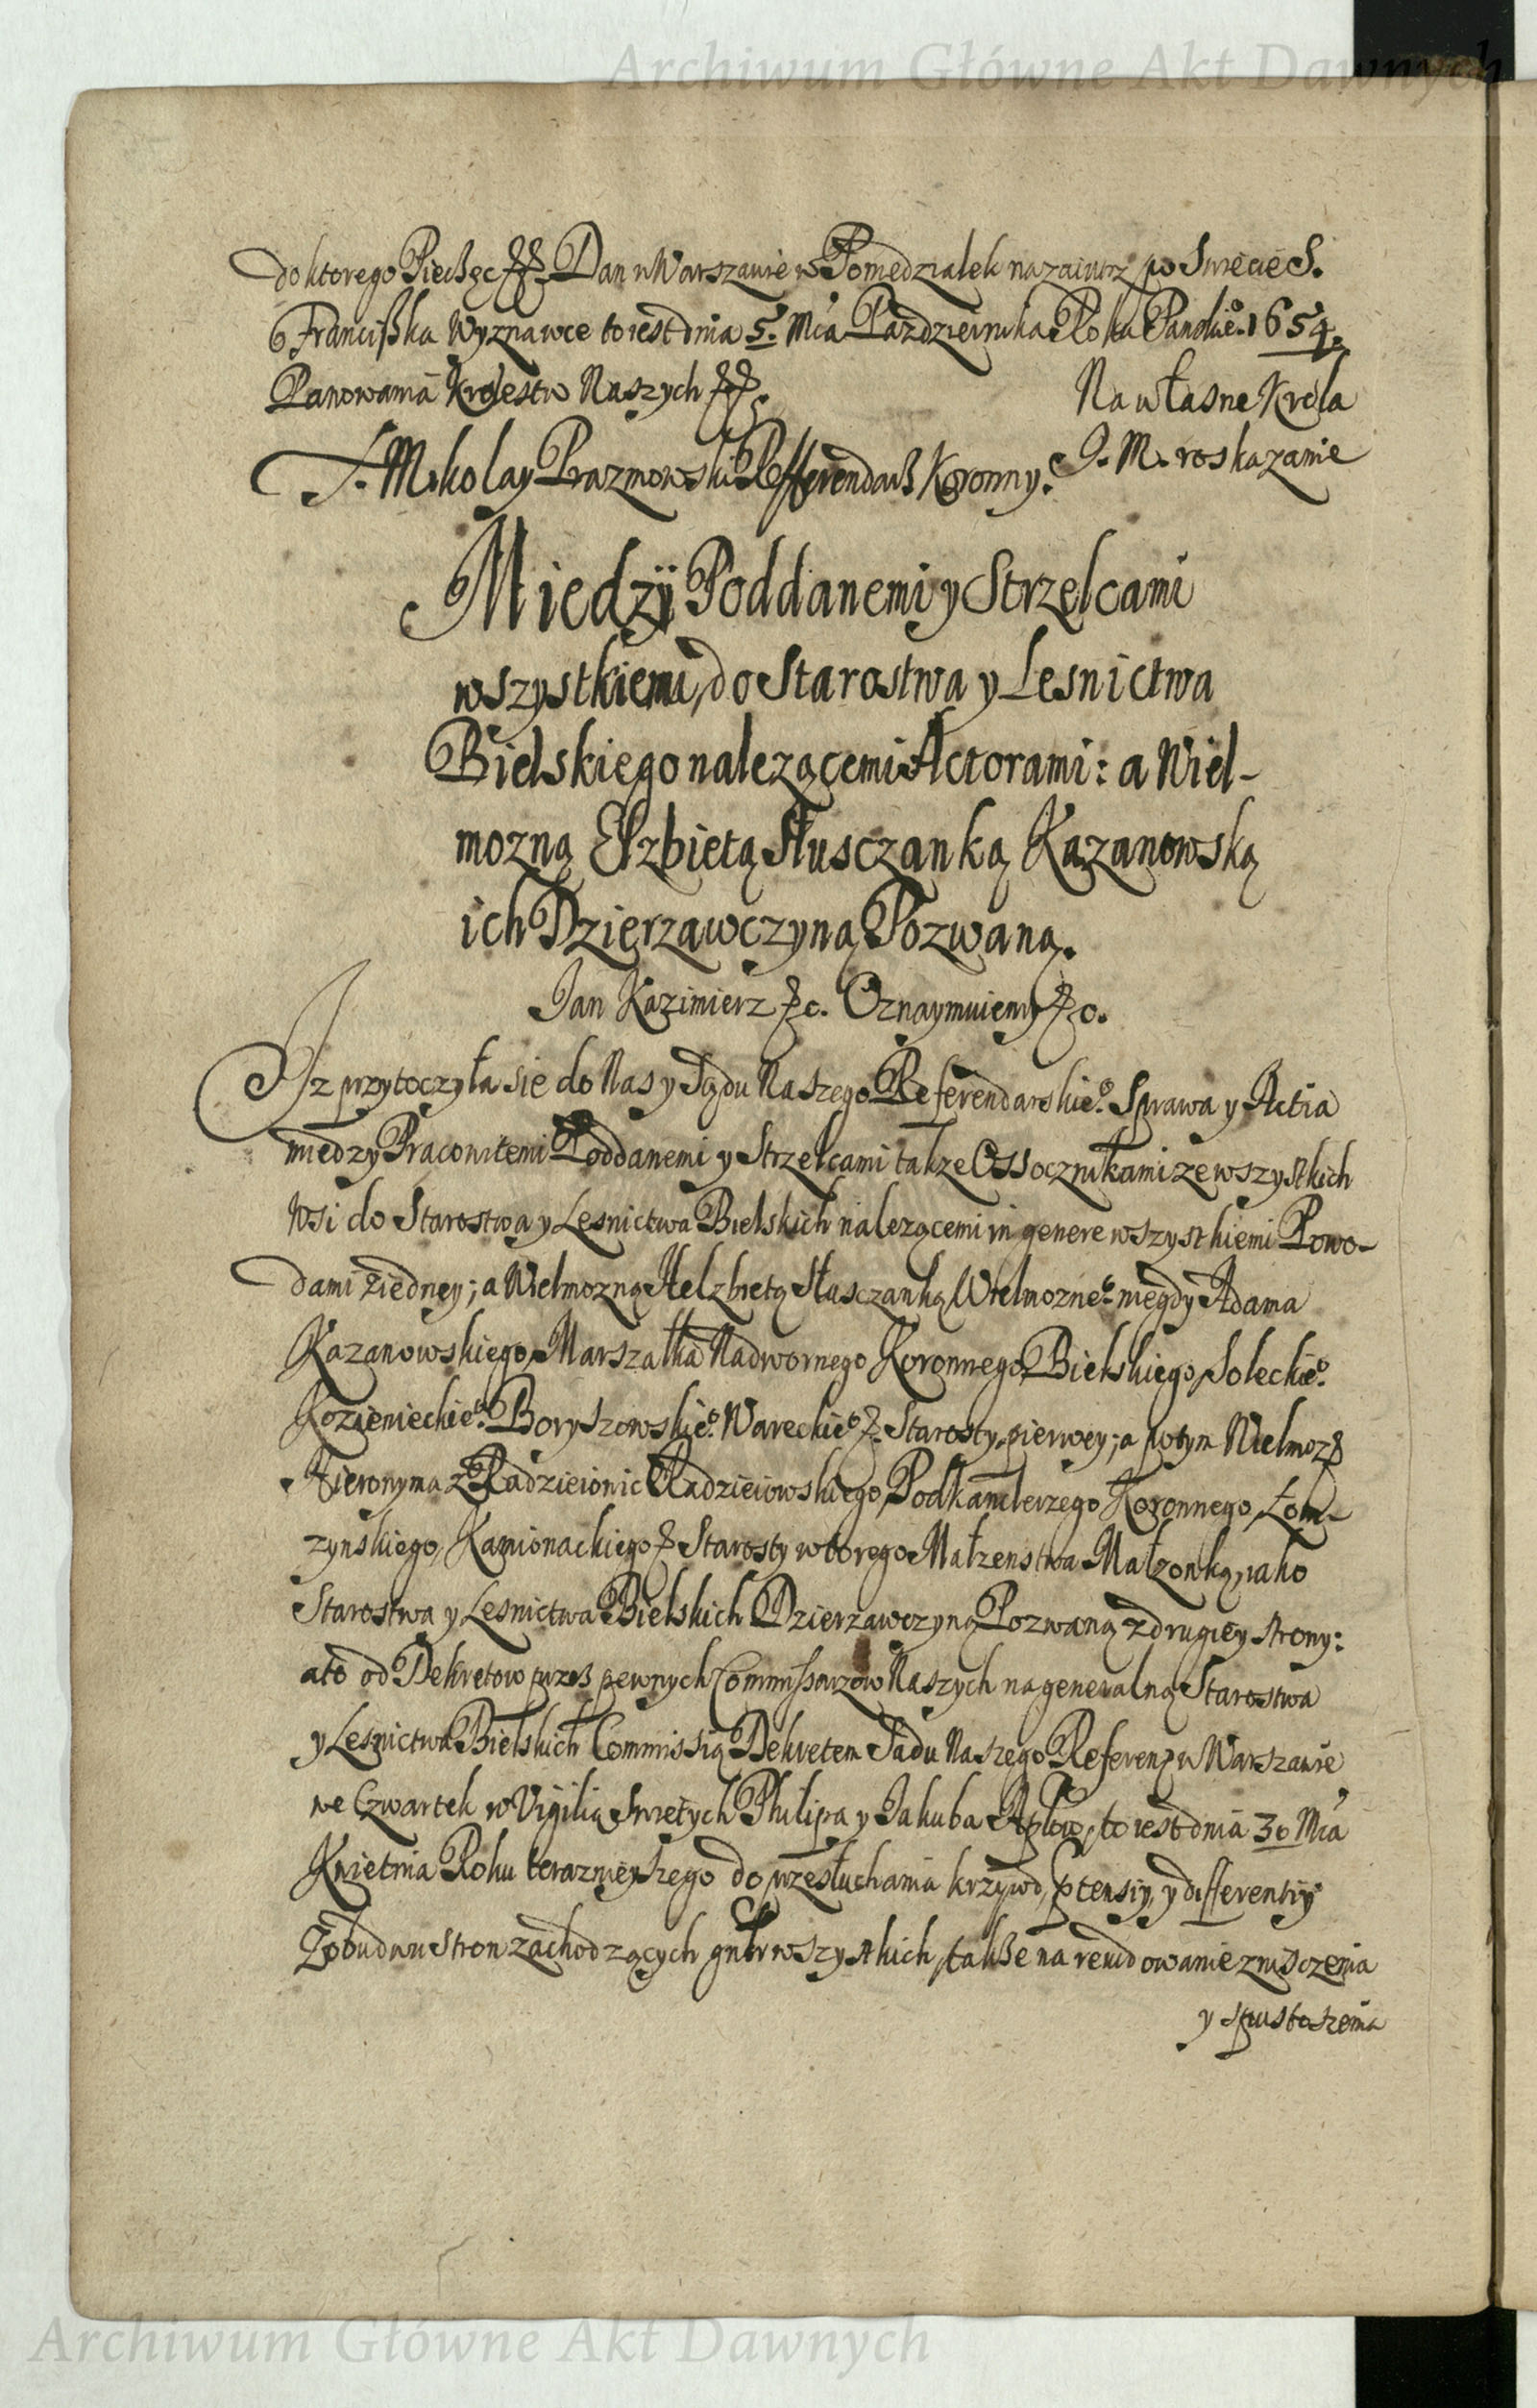 Archiwum Główne Akt Dawnych
do ktorego Pieczęc &&. Dan w Warszawie w Poniedziałek nazaiutrz po Swięcie S.
Franciszka Wyznawce to iest dnia 5. Mca Pazdziernika Roku Panskieº. 1654.
Panowania Krolestw Naszych &&.
Na własne Krola
J. M. roskazanie
X. Mikolay Prazmowski Refferendarz Koronny.
Między Poddanemi y Strzelcami
wszystkiemi, do Starostwa y Lesnictwa
Bielskiego nalezącemi Actorami: a Wiel-
mozną Elzbietą Słusczanką Kazanowską
ich Dzierzawczyną Pozwaną.
Jan Kazimierz &c. Oznaymuiemy &c.
Iz przytoczyła się do Nas y Sądu Naszego Referendarskieº. Sprawa y Actia
między Pracowitemi Poddanemi y Strzelcami takze Ossocznikami ze wszystkich
Wsi do Starostwa y Lesnictwa Bielskich nalezącemi in genere wszystkiemi Powo-
dami z iedney; a Wielmozną Helzbietą Słusczanką Wielmozneº. niegdy Adama
Kazanowskiego, Marszałka Nadwornego Koronnego, Bielskiego, Soleckieº.
Kozienieckieº. Boryszowskieº. Wareckieº &. Starosty, pierwey; a potym Wielmoz&
Hieronyma z Radzieiowic Radzieiowskiego, Podkanclerzego Koronnego, Łom-
zynskiego, Kamionackiego & Starosty wtorego Małzenstwa Małzonką, iako
Starostwa y Lesnictwa Bielskich Dzierzawczyną Pozwaną z drugiey strony:
a to od Dekretow przez pewnych Commissarzow Naszych na generalną Starostwa
y Lesnictwa Bielskich Commissią Dekretem Sądu Naszego Referen& w Warszawie
we Czwartek w Vigilią Swiętych Philipa y Jakuba Aplow, to iest dnia 30 Mca
Kwietnia Roku terazнieyszego do przesłuchania krzywd, ptensiy, y differentiy
Z obudwu stron zachodzących gntr wszystkich, takze na rewidowanie znisczenia
y spustoszenia
Archiwum Główne Akt Dawnych